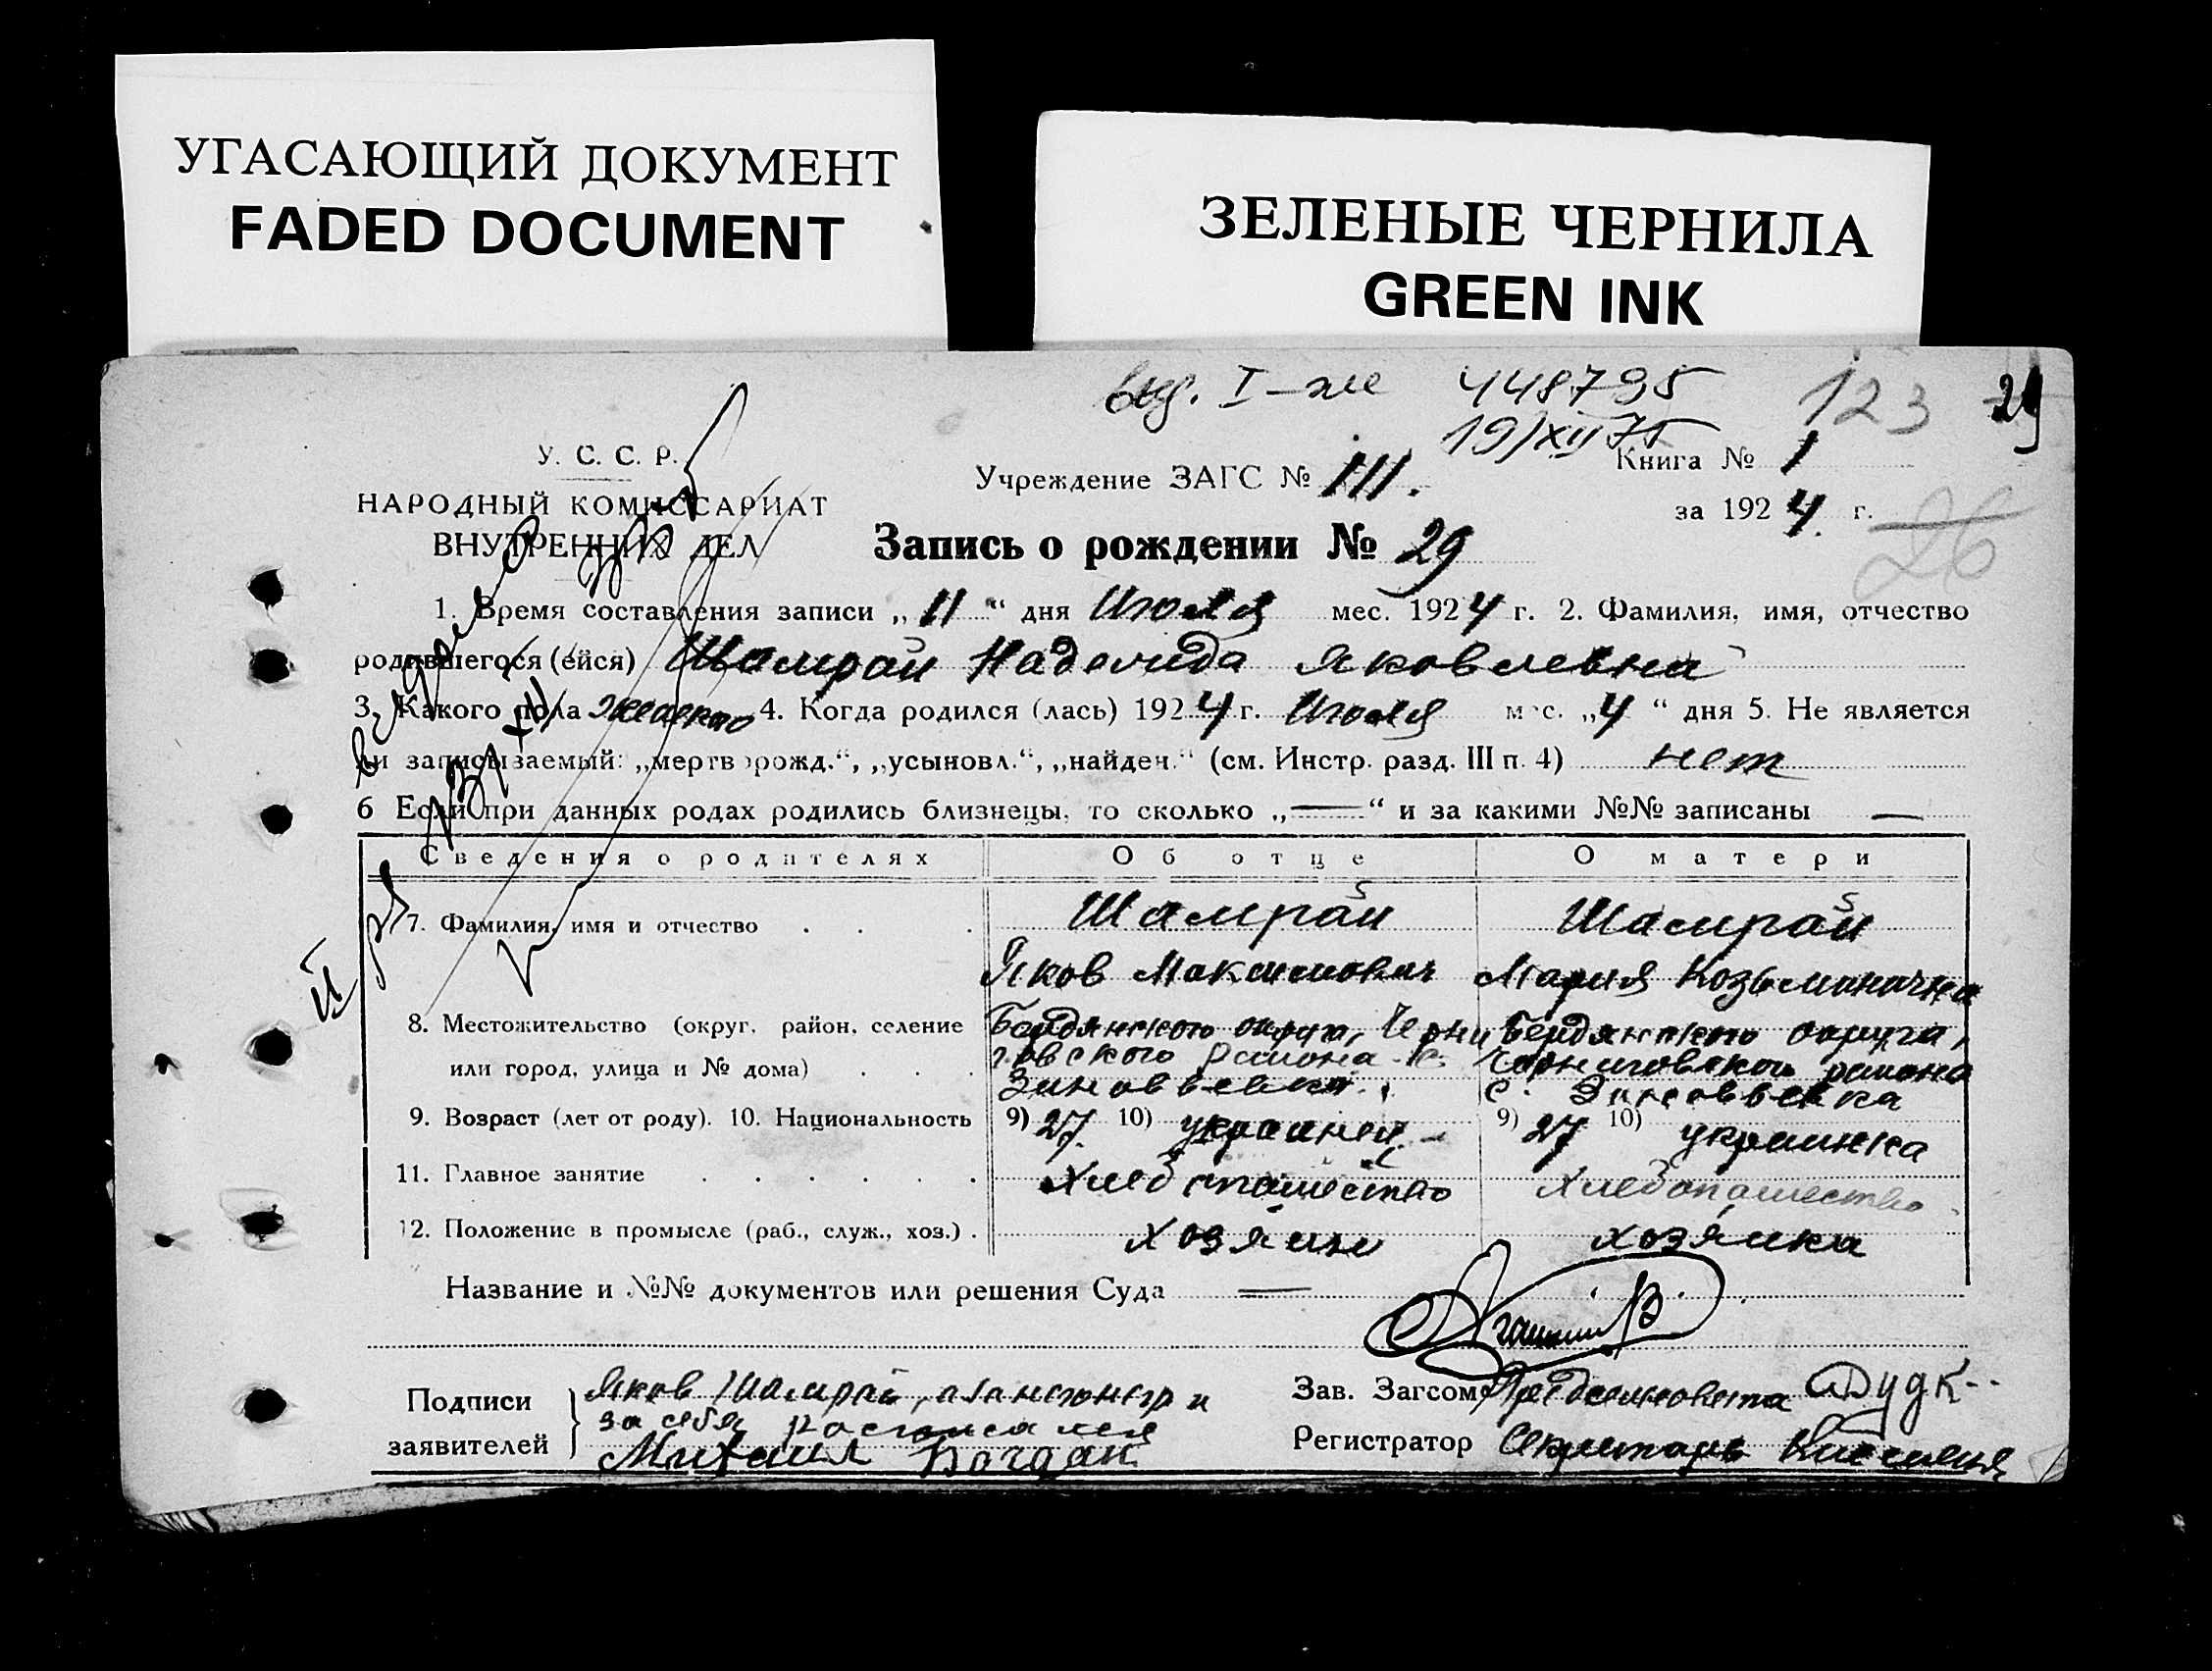 УГАСАЮЩИЙ ДОКУМЕНТ
FADED DOCUMENT
ЗЕЛЕНЫЕ ЧЕРНИЛА
GREEN INK
448795
123 29
19/XII 75
У. С. С. Р.
НАРОДНЫЙ КОМИССАРИАТ
ВНУТРЕННИХ ДЕЛ
Учреждение ЗАГС № 111.
Книга № 1
за 1924 г.
26
Запись о рождении № 29
1. Время составления записи „11“ дня Июля мес. 1924 г. 2. Фамилия, имя, отчество
родившегося (ейся) Шамрай Надежда Яковлевна
3. Какого пола женско 4. Когда родился (лась) 1924 г. Июля мес. „4“ дня 5. Не является
ли записываемый: „мертворожд.“, „усыновл.“, „найден.“ (см. Инстр. разд. III п. 4) нет
6 Если при данных родах родились близнецы, то сколько „—“ и за какими №№ записаны —
Сведения о родителях Об отце О матери
7. Фамилия, имя и отчество Шамрай Шамрай
Яков Максимович Мария Козьминична
8. Местожительство (округ, район, селение Бердянского округа, Черни Бердянского округа,
или город, улица и № дома) говского района с. Черниговского района
Зиновьевка с. Зиновьевка
9. Возраст (лет от роду). 10. Национальность 9) 27. 10) украинец 9) 27 10) украинка
11. Главное занятие хлебопашество хлебопашество
12. Положение в промысле (раб., служ., хоз.) хозяин хозяйка
Название и №№ документов или решения Суда —
Подписи заявителей Яков Шамрай, а
за себя расписался
Михаил Богдан
Зав. Загсом Предсельсовета
Регистратор Секретарь